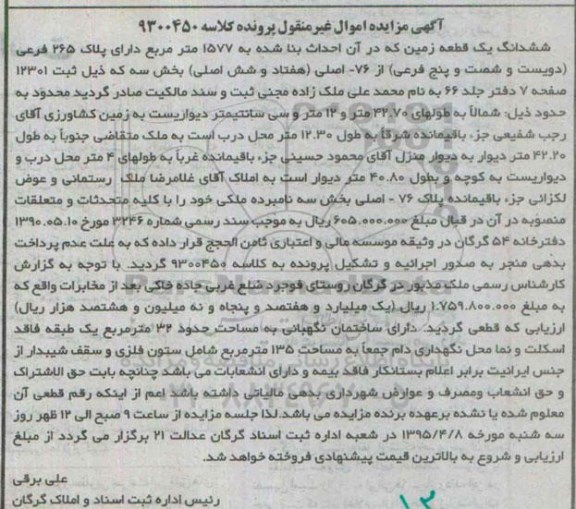 آگهی مزایده اموال غیرمنقول پرونده کلاسه ۹۳۰۰۴۵۰
ششدانگ یک قطعه زمین که در آن احداث بنا شده به ۱۵۷۷ متر مربع دارای پلاک ۲۶۵ فرعی
(دویست و شصت و پنج فرعی) از ۷۶- اصلی (هفتاد و شش اصلی) بخش سه که ذیل ثبت ۱۲۳۰۱
صفحه ۷ دفتر جلد ۶۶ به نام محمد علی ملک زاده مجنی ثبت و سند مالکیت صادر گردید محدود به
حدود ذیل: شمالاً به طولهای ۴۲.۷۰ متر و ۱۲ متر و سی سانتیمتر دیواریست به زمین کشاورزی آقای
رجب شفیعی جزء باقیمانده شرقاً به طول ۱۲.۳۰ متر محل درب است به ملک متقاضی جنوباً به طول
۴۲.۲۰ متر دیوار به دیوار منزل آقای محمود حسینی جزء باقیمانده غرباً به طولهای ۴ متر محل درب و
دیواریست به کوچه و بطول ۴۰.۸۰ متر دیوار است به املاک آقای غلامرضا ملک رستمانی و عوض
لکزانی جزء باقیمانده پلاک ۷۶ - اصلی بخش سه نامبرده ملکی خود را با کلیه متحدثات و متعلقات
منصوبه در آن در قبال مبلغ ۶۰۵.۰۰۰.۰۰۰ ریال به موجب سند رسمی شماره ۳۲۴۶ مورخ ۱۳۹۰.۰۵.۱۰
دفترخانه ۵۴ گرگان در وثیقه موسسه مالی و اعتباری ثامن الحجج قرار داده که به علت عدم پرداخت
بدهی منجر به صدور اجرائیه و تشکیل پرونده به کلاسه ۹۳۰۰۴۵۰ گردید. با توجه به گزارش
کارشناس رسمی ملک مذبور در گرگان روستای فوجرد ضلع غربی جاده خاکی بعد از مخابرات واقع که
به مبلغ ۱.۷۵۹.۸۰۰.۰۰۰ ریال (یک میلیارد و هفتصد و پنجاه و نه میلیون و هشتصد هزار ریال)
ارزیابی که قطعی گردید. دارای ساختمان نگهبانی به مساحت حدود ۳۲ مترمربع یک طبقه فاقد
اسکلت و نما محل نگهداری دام جمعاً به مساحت ۱۳۵ مترمربع شامل ستون فلزی و سقف شیبدار از
جنس ایرانیت برابر اعلام بستانکار فاقد بیمه و دارای انشعابات می باشد چنانچه بابت حق الاشتراک
و حق انشعاب ومصرف و عوارض شهرداری بدهی مالیاتی داشته باشد اعم از اینکه رقم قطعی آن
معلوم شده یا نشده برعهده برنده مزایده می باشد.لذا جلسه مزایده از ساعت ۹ صبح الی ۱۲ ظهر روز
سه شنبه مورخه ۱۳۹۵/۴/۸ در شعبه اداره ثبت اسناد گرگان عدالت ۲۱ برگزار می گردد از مبلغ
ارزیابی و شروع به بالاترین قیمت پیشنهادی فروخته خواهد شد.
علی برقی
رئیس اداره ثبت اسناد و املاک گرگان
۱۳